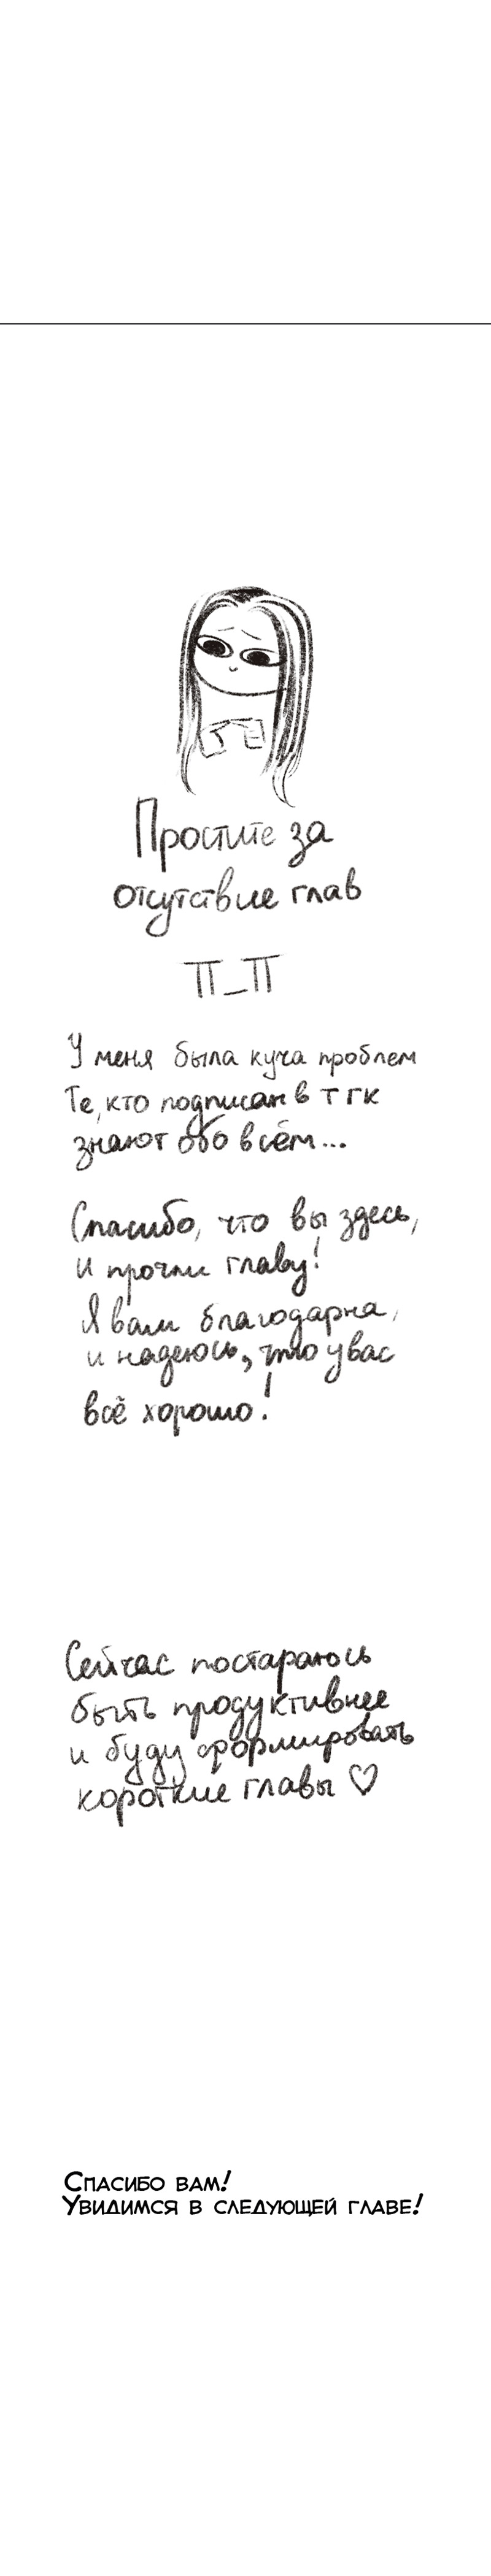 Простите за
отсутствие глав
П_П
У меня была куча проблем
Те, кто подписан в тгк
знают обо всём...
Спасибо, что вы здесь,
и прочли главу!
Я вам благодарна,
и надеюсь, что у вас
всё хорошо!
Сейчас постараюсь
быть продуктивнее
и буду формировать
короткие главы ♡
Спасибо вам!
Увидимся в следующей главе!